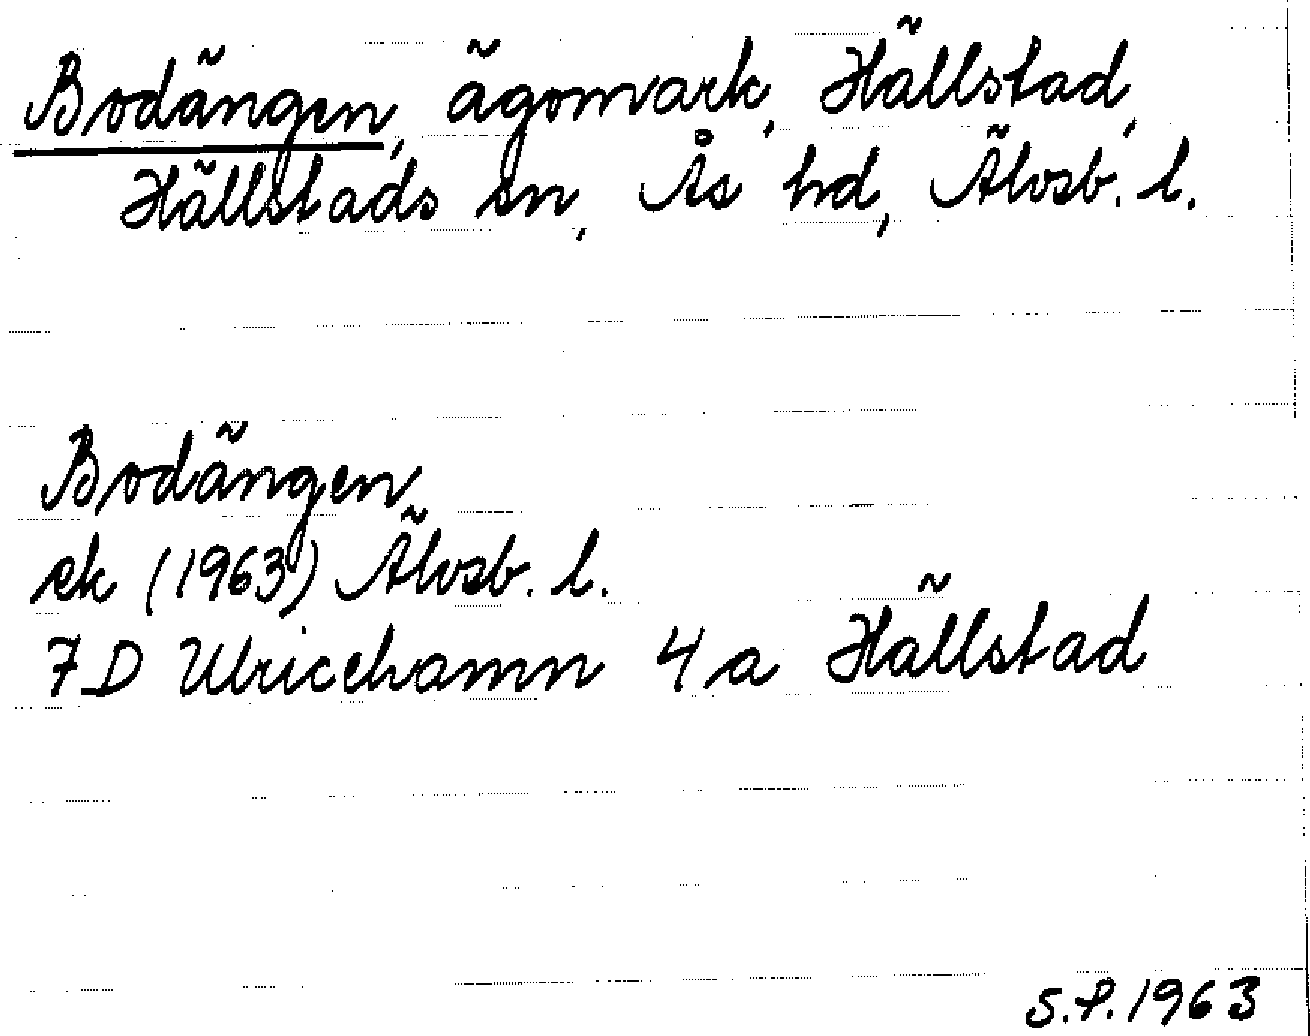 Bodängen, ägomark, Hällstad,
Hällstads sn, Ås hd, Älvsb. l.
Bodängen
ek (1963) Älvsb. l.
7D Ulricehamn 4a Hällstad
S.P. 1963